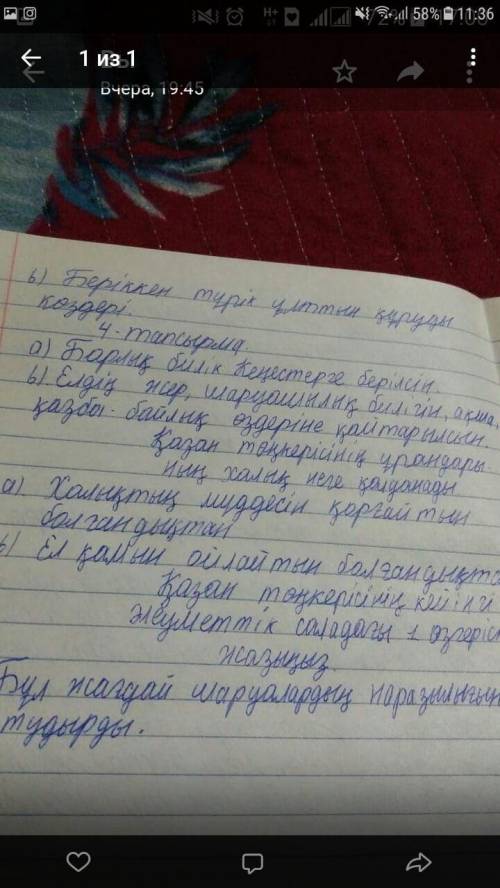 58% 11:36
1 из 1
Вчера, 19:45
ь) Беріккен түрік ұлттын құруды
көздері.
4-тапсырма.
а) Барлық билік Кеңестерге берілсін.
ь) Елдің жер, шаруашылық билігін, ақша,
қазба-байлық өздеріне қайтарылсын.
Қазан төңкерісінің ұрандары
ның халық неге қолданады
а). Халықтың мүддесін қорғайтын
болғандықтан
ь) Ел қамын ойлайтын болғандықта
Қазан төңкерісінің кейінгі
Әеуметтік саладағы 1 өзгеріс
жазыңыз.
Бұл жағдай шаруалардың наразылығын
тудырды.